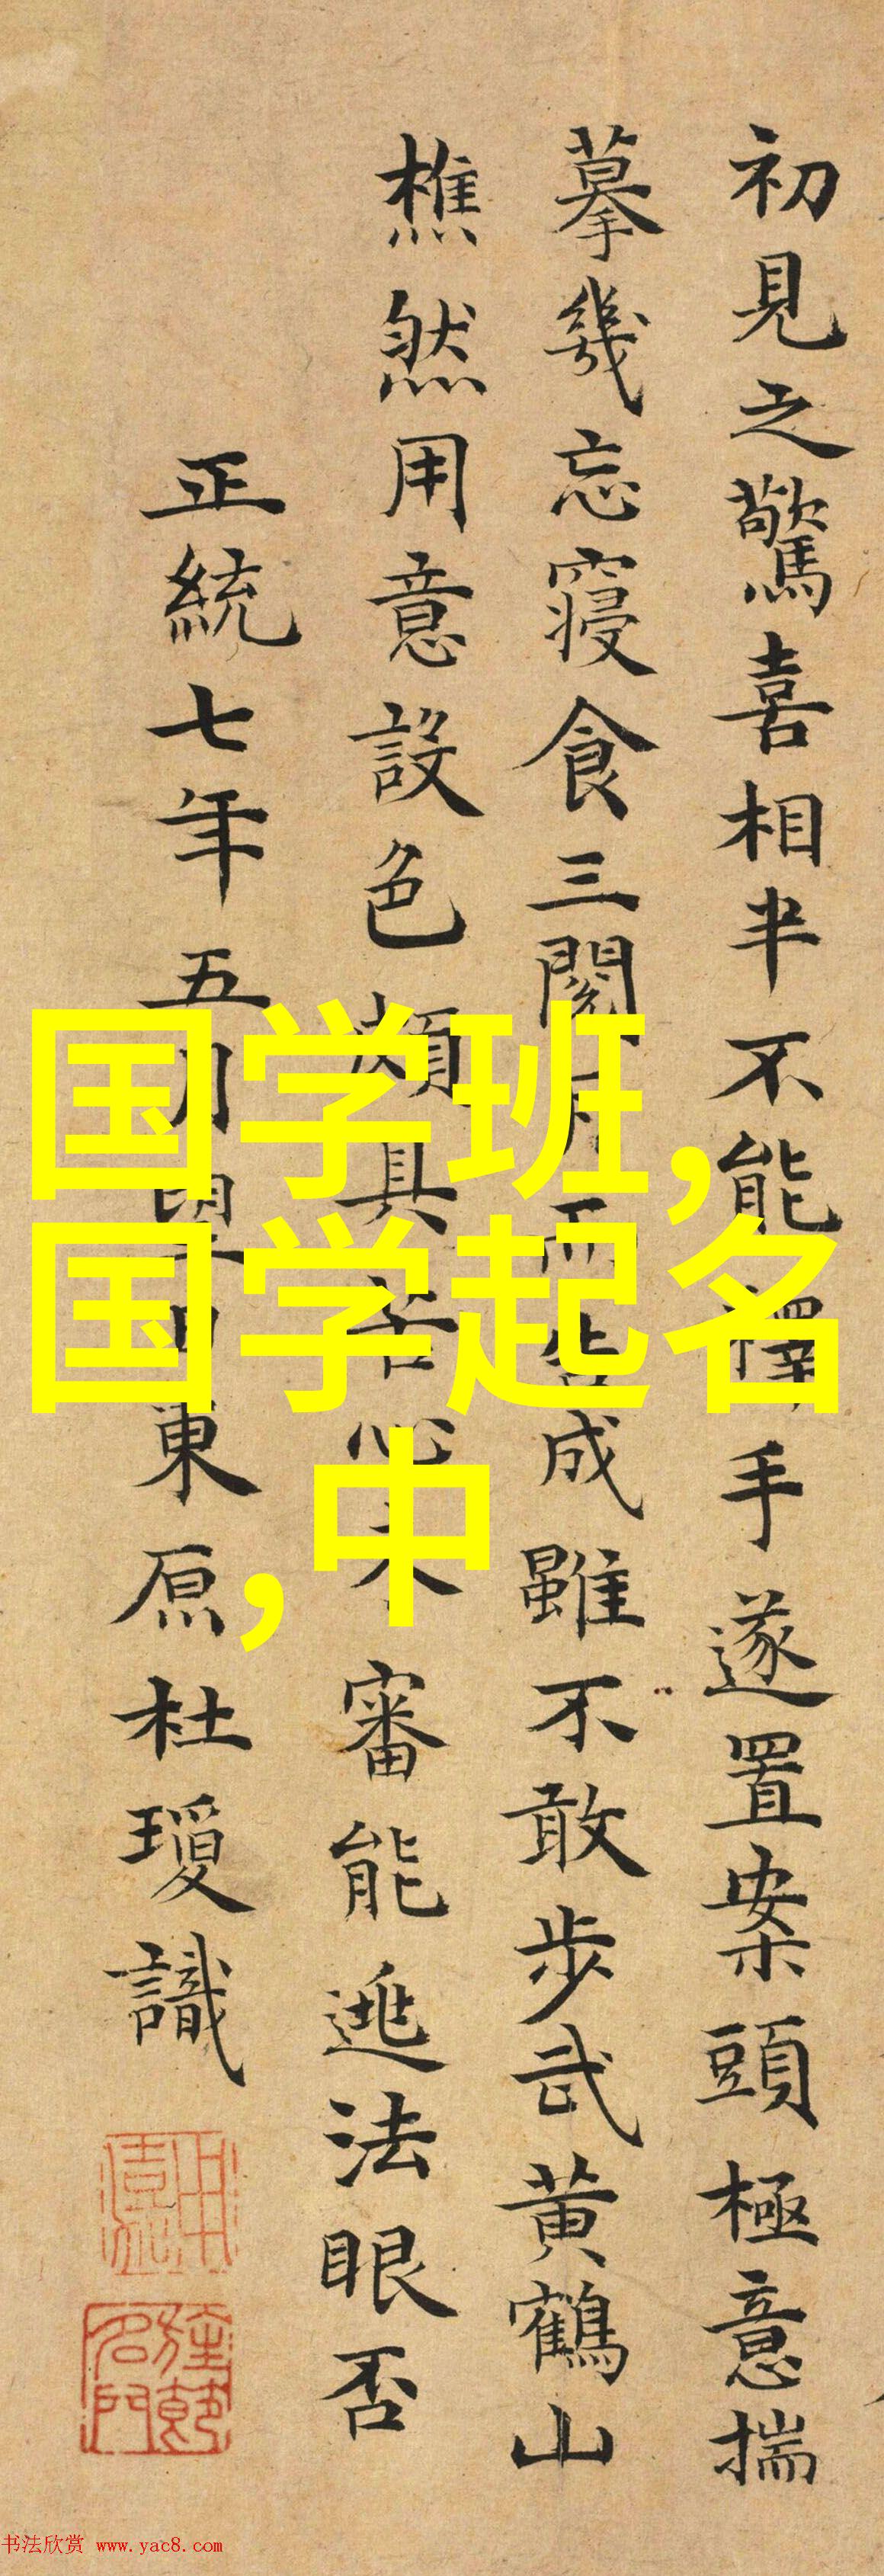 初見之驚喜相半不能釋手遂置案頭極意揣
摹幾忘寝食三閱月而告成雖不敢步武黄鶴山
樵然用意設色頗具苦心未審能逃法眼否
正統七年五月望日東原杜瓊識
国学班,
国学起名
,中
书法欣赏 www.yac8.com